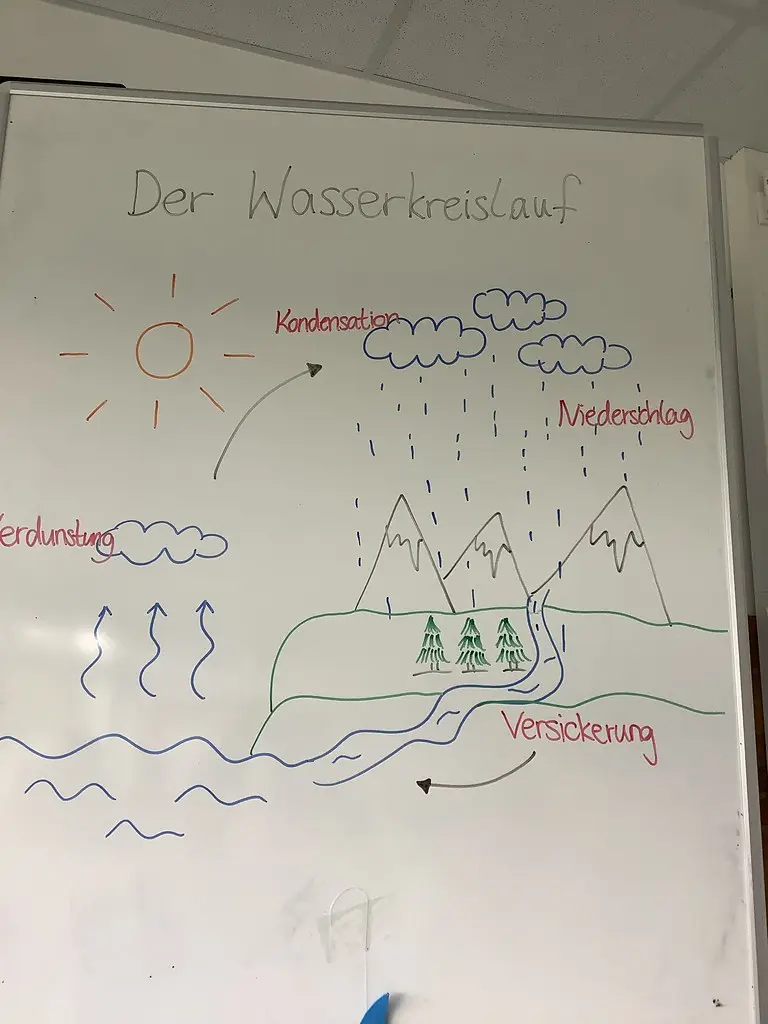 Der Wasserkreislauf
Kondensation
Niederschlag
erdunstung
Versickerung